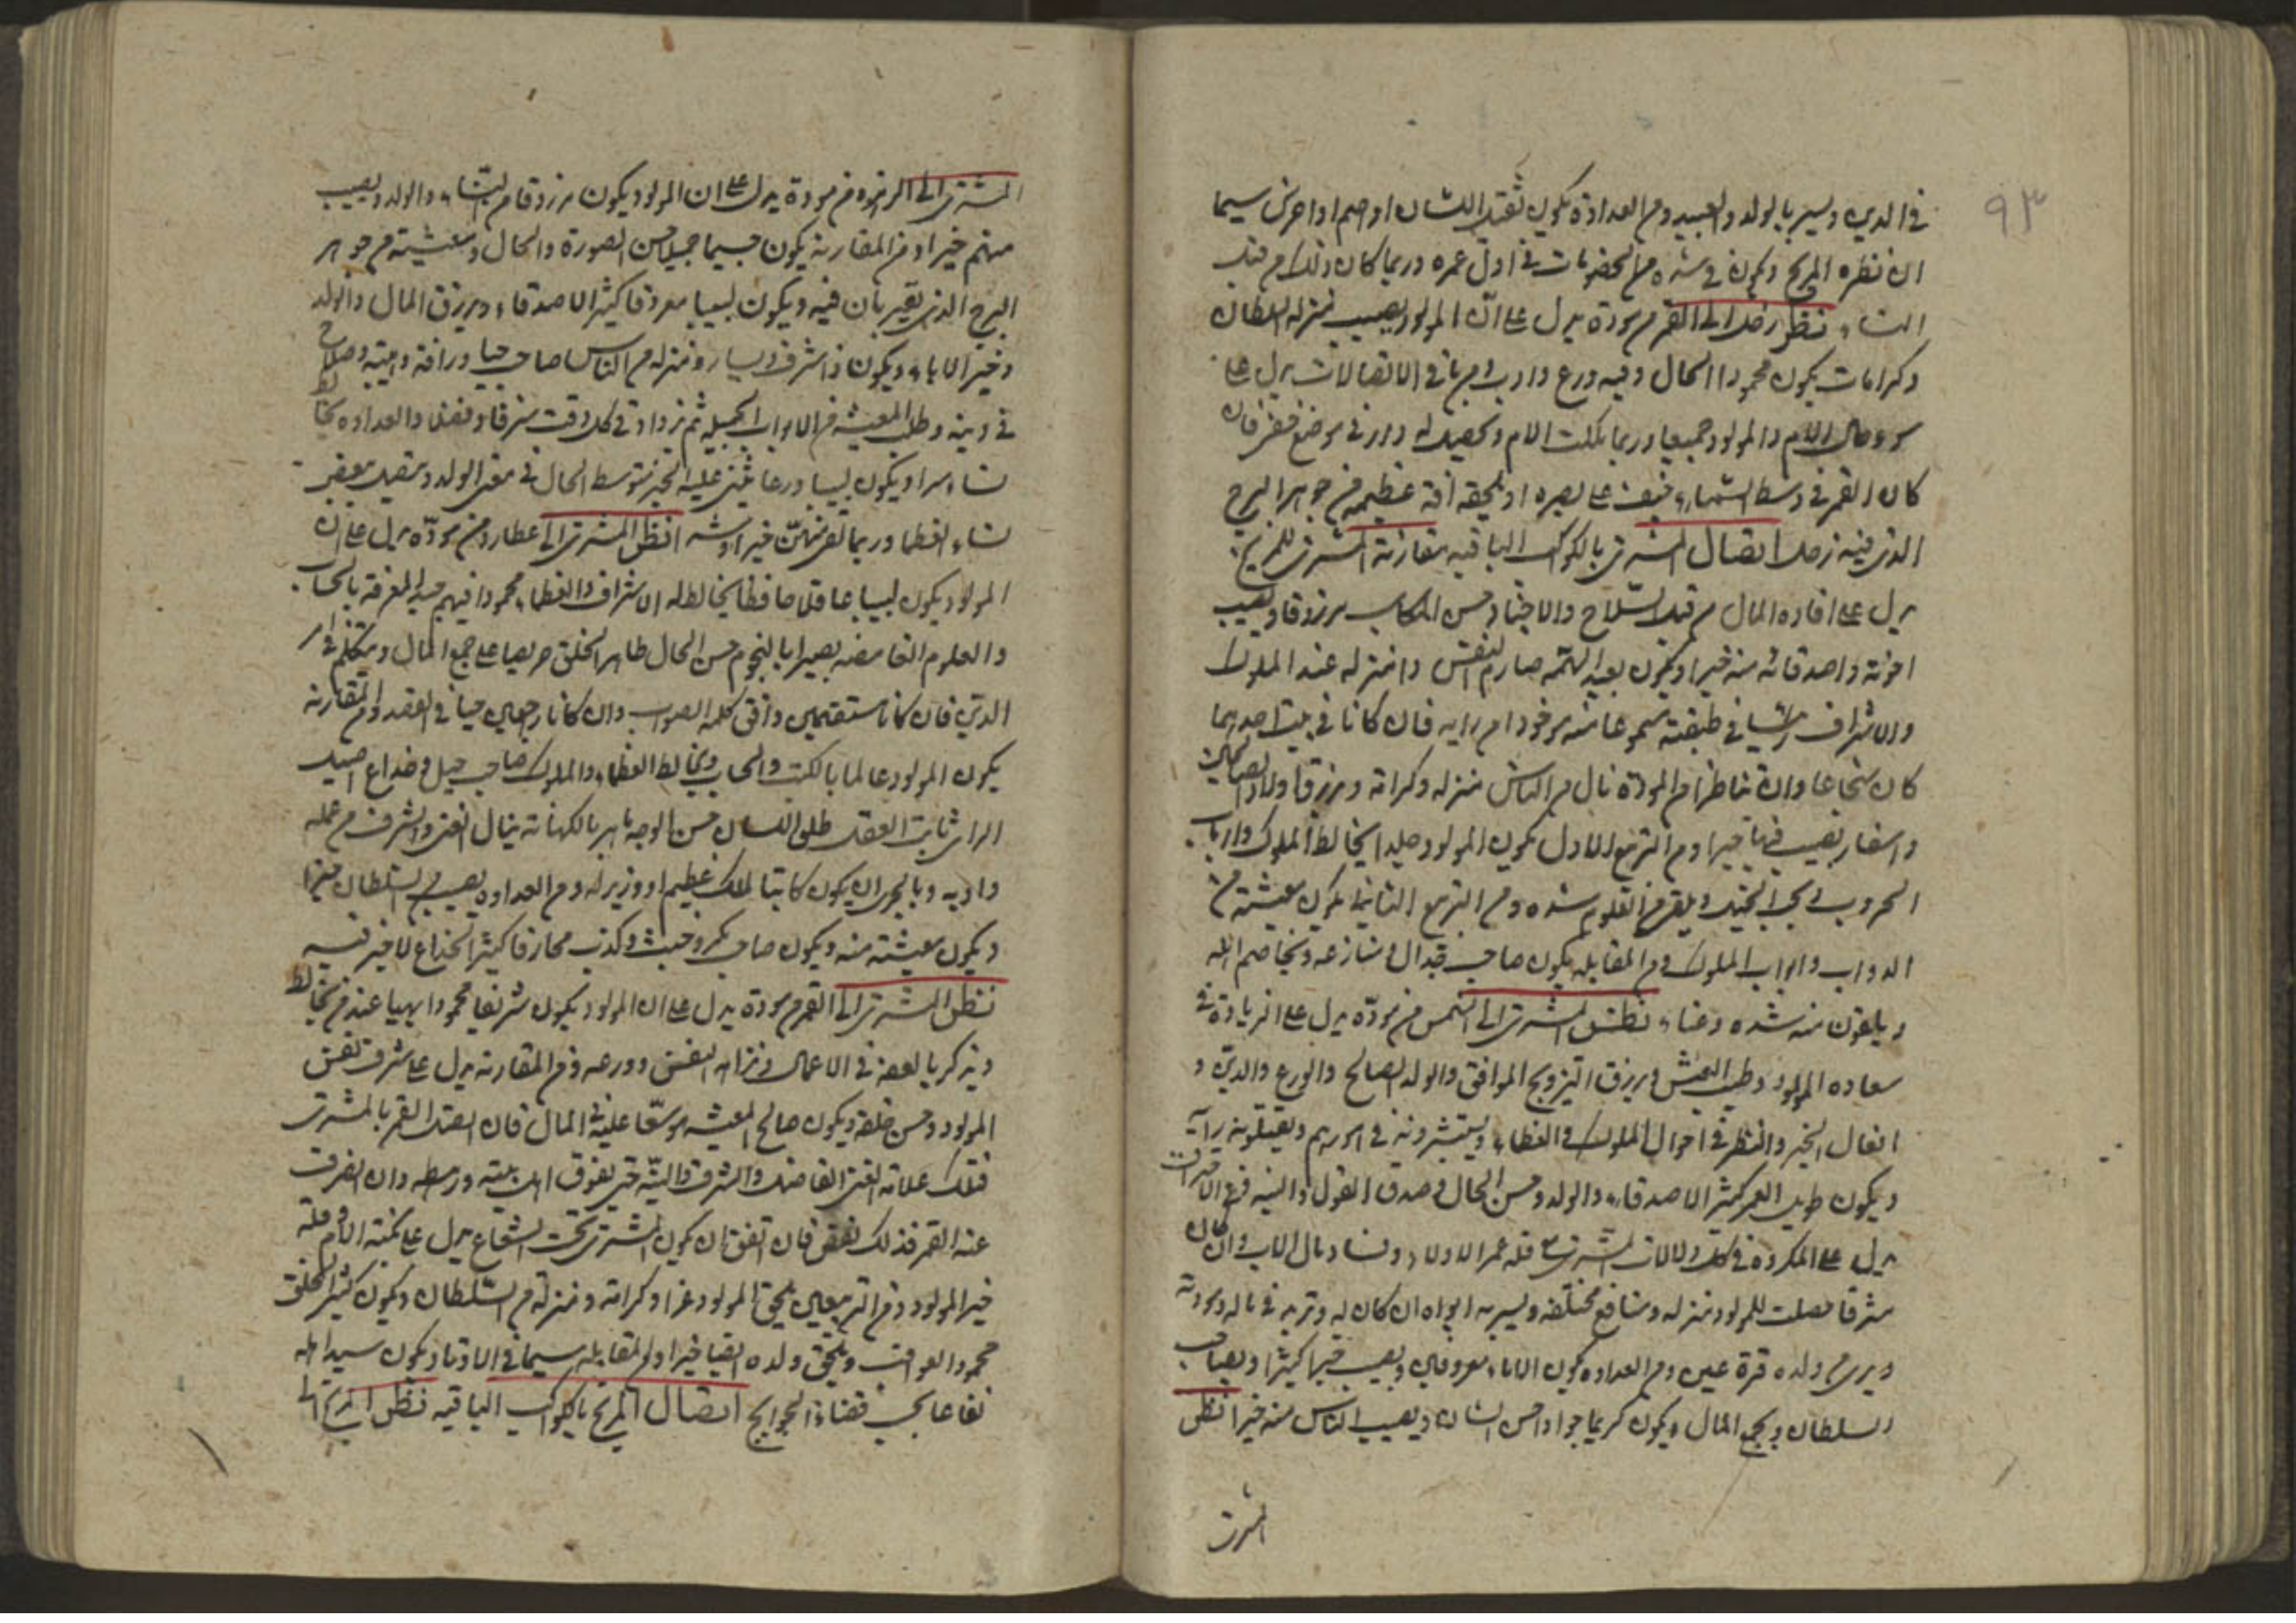 ٩٣
في الدين ويسير بالولد والعبيد ومن العداوة يكون ثقيل اللسان او اصم او اخرس سيما
ان نظره المريخ ويكون في شدة من الخصومات في اول عمره وربما كان ذلك من قبل
النساء نظر زحل الى القمر من مودة يدل على ان المولود يصيب منزله السلطان
وكرامات يكون محمودا الحال وفيه ورع وادب ومن باقي الاتصالات يدل على
سوء حال الام والمولود جميعا وربما نكلت الام في موضع قفر فان
كان القمر في وسط السماء خيف على بصره او يلحقه افة عظيمه من جوهر البرج
الذي فيه زحل اتصال المشتري بالكواكب الباقيه مقارنة المشتري للمريخ
يدل على افاده المال من قبل السلاح والاجناد وحسن المكاسب مرزوقا ويصيب
اخوته واصدقائه منه خيرا ويكون بعيد الهمه صارم النفس ذا منزله عند الملوك
والاشراف في طبقته فان كانا في بيت احدهما
كان شجاعا وان تناظرا من المودة نال من الناس منزله وكرامة ويرزق اولادا
واسفار يصيب فيها خيرا ومن التربيع الاول يكون المولود جلدا يخالط الملوك وارباب
الحروب ومن التربيع الثاني يكون معيشته من
الدواب وابواب الملوك ومن المقابله يكون صاحب جدال ومنازعه ويخاصم اهله
ويلقون منه شده وعناء نظر المشتري الى الشمس من مودة يدل على الزيادة في
سعاده المولود وطيب العيش ويرزق التزويج الموافق والولد الصالح والورع والدين و
افعال الخير والنظر في احوال الملوك والعظماء ويستشيرونه في امورهم ويقبلون رأيه
ويكون طويل العمر كثير الاصدقاء والولد وحسن الحال في صدق القول والنيه
يدل على المكروه في كل دلالات المشتري قلة عمر الاولاد وفساد مال الاب وان كان
مشرقا حصلت للمولود منزله ومنافع مختلفه ويسير به ابواه ان كان له
ويرى من ولده قرة عين ومن العداوه يكون الاباء معروفين ويصيب خيرا كثيرا
السلطان ويجمع المال ويكون كريما جوادا حسن الشان ويصيب الناس منه خيرا نظر
المشتري
المشتري الى الزهره من مودة يدل على ان المولود يكون مرزوقا من النساء والولد ويصيب
منهم خيرا ومن المقارنة يكون جسيما جميلا حسن الصورة والحال ومعيشته من جوهر
البرج الذي يقتربان فيه ويكون لبيبا معروفا كثير الاصدقاء ويرزق المال والولد
وخير الاباء ويكون ذا شرف ويسار ومنزله من الناس صاحب حيا ورافة وهيبه وصلاح
في دينه وطلب المعيشه من الابواب الجميله ثم يزداد في كل وقت شرفا وفضلا والعداوه يخالط
نساء سرا ويكون لبيبا ورعا يثنى عليه الخير متوسط الحال في معنى الولد
نساء العظما وربما لقي منهن خيرا وشر نظر المشتري الى عطارد من مودة يدل على ان
المولود يكون لبيبا عاقلا حافظا يخالط الاشراف والعظماء محمودا فيهم جيد المعرفة بالحساب
والعلوم الغامضه بصيرا بالنجوم حسن الحال طاهر الخلق حريصا على جمع المال ويتكلم في امر
الدين فان كانا مستقيمين وافق كلمه الصواب وان كانا راجعين ومن المقارنه
يكون المولود عالما بالكتب والحساب ويخالط العظماء والملوك صاحب حيل وخداع اصيل
الراي ثابت العقل طلق اللسان حسن الوجه ماهر بالكهانة ينال الغنى والشرف من عمله
وادبه وبالحري ان يكون كاتبا لملك عظيم او وزير له ومن العداوه يصيب من السلطان خيرا
ويكون معيشته منه ويكون صاحب مكر وخبث وكذب محارفا كثير الخداع لا خير فيه
نظر المشتري الى القمر من مودة يدل على ان المولود يكون شريفا محمودا بهيا عند من يخالط
ويذكر بالعفه في الاعمال ونزاهه النفس وورعه ومن المقارنه يدل على شرف نفس
المولود وحسن خلقه ويكون صالح المعيشه موسعا عليه في المال فان اتصل القمر بالمشتري
فتلك علامة الغنى الفاضل والشرف والنبه حتى يفوق اهل بيته ورهطه وان انصرف
عنه القمر فذلك نقص فان اتفق ان يكون المشتري تحت الشعاع يدل على محنة الام وقلة
خير المولود ومن التربيعين يلحق المولود عزا وكرامه ومنزله من السلطان ويكون كثير الخلق
محمود العواقب ويلحق ولده ايضا خيرا ومن المقابله سيما في الاوتاد يكون سيد اهله
نفاعا يحب قضاء الحوايج اتصال المريخ بالكواكب الباقيه نظر المريخ الى